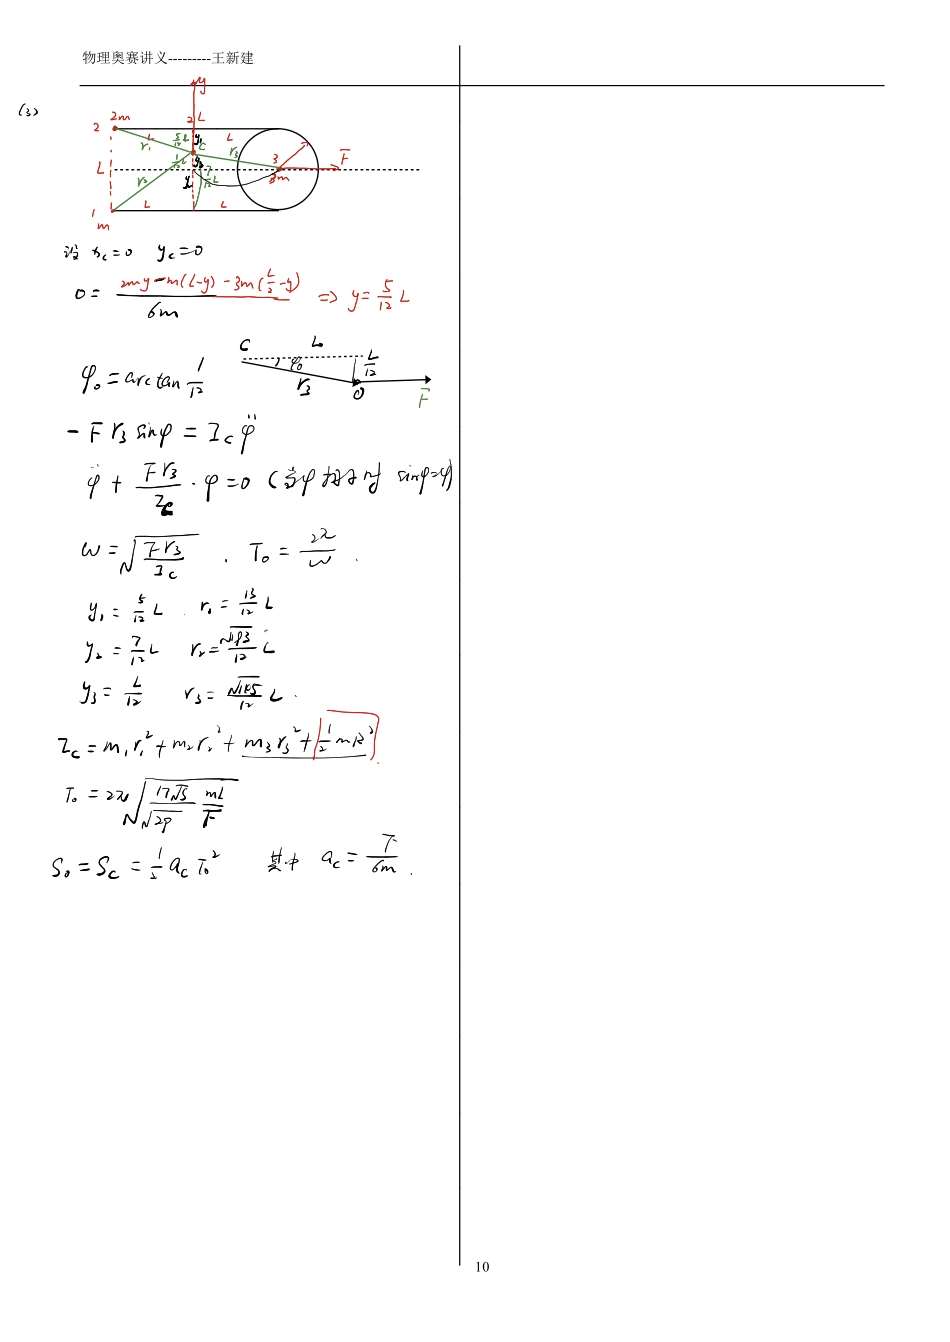 物理奥赛讲义---------王新建
(3)
y
2 2m L r₁ 5/12 L 2 L y₁ C L r₃ 3 F
L r₂ 1/12 L y₃ 7/12 L 3m
1 m L L
设 x_c=0 y_c=0
0 = (2my - m(L-y) - 3m(L/2 - y))/6m => y = 5/12 L
φ₀ = arctan 1/12 C L φ₀ L/12 r₃ O F
- F r₃ sinφ = I_c φ̈
φ̈ + F r₃/I_c · φ = 0 (当φ 时 sinφ=φ)
ω = √(F r₃/I_c) . T₀ = 2π/ω .
y₁ = 5/12 L . r₁ = 13/12 L
y₂ = 7/12 L r₂ = √193/12 L
y₃ = L/12 r₃ = √145/12 L .
I_c = m₁r₁² + m₂r₂² + m₃r₃² + 1/2 mR²
T₀ = 2π √(17√5/√29 mL/F)
S₀ = S_c = 1/2 a_c T₀² 其中 a_c = F/6m .
10